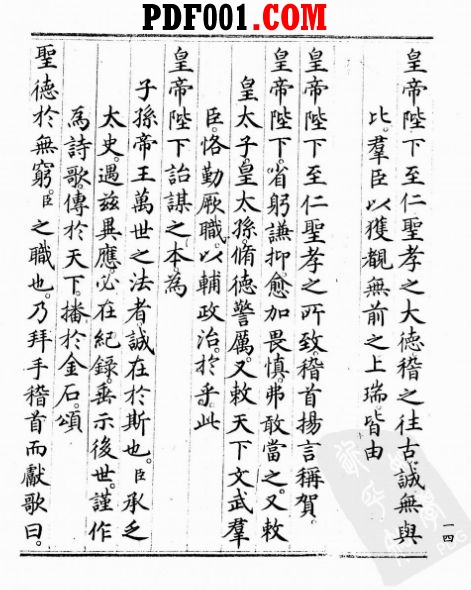 PDF001.COM
皇帝陛下至仁聖孝之大德稽之往古誠無與
比。羣臣以獲覩無前之上瑞皆由
皇帝陛下至仁聖孝之所致稽首揚言稱賀。
皇帝陛下。省躬謙抑。愈加畏慎。弗敢當之。又敕
皇太子。皇太孫。脩德警厲。又敕天下文武羣
臣。恪勤厥職。以輔政治。於乎此
皇帝陛下詒謀之本。為
子孫帝王萬世之法者誠在於斯也。臣承乏
太史。遇茲異應。必在紀錄。垂示後世。謹作
為詩歌。傳於天下。播於金石。頌
聖德於無窮。臣之職也。乃拜手稽首而獻歌曰。
一四
PDG